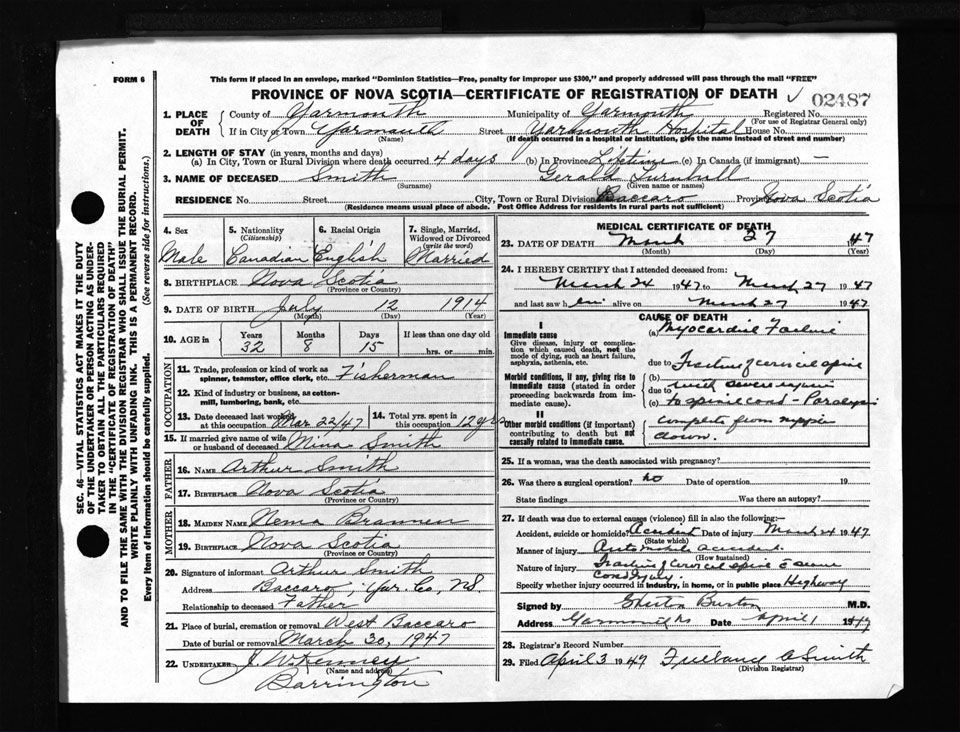 FORM 6
This form if placed in an envelope, marked "Dominion Statistics—Free, penalty for improper use $300," and properly addressed will pass through the mail "FREE"
PROVINCE OF NOVA SCOTIA—CERTIFICATE OF REGISTRATION OF DEATH ✓ 02487
1. PLACE OF DEATH County of Yarmouth Municipality of Yarmouth Registered No.
(For use of Registrar General only)
If in City or Town Yarmouth Street Yarmouth Hospital House No.
(Name) (If death occurred in a hospital or institution, give the name instead of street and number)
2. LENGTH OF STAY (in years, months and days)
(a) In City, Town or Rural Division where death occurred 4 days (b) In Province Lifetime (c) In Canada (if immigrant) —
3. NAME OF DECEASED Smith Gerald Turnbull
(Surname) (Given name or names)
RESIDENCE No. Street City, Town or Rural Division Baccaro Province Nova Scotia
(Residence means usual place of abode. Post Office Address for residents in rural parts not sufficient)
4. Sex 5. Nationality (Citizenship) 6. Racial Origin 7. Single, Married, Widowed or Divorced (write the word)
Male Canadian English Married
8. BIRTHPLACE Nova Scotia
(Province or Country)
9. DATE OF BIRTH July 12 1914
(Month) (Day) (Year)
10. AGE in Years Months Days If less than one day old
32 8 15 hrs. or min.
OCCUPATION
11. Trade, profession or kind of work as spinner, teamster, office clerk, etc. Fisherman
12. Kind of industry or business, as cotton-mill, lumbering, bank, etc.
13. Date deceased last worked at this occupation Mar 22/47 14. Total yrs. spent in this occupation 12 yrs
15. If married give name of wife or husband of deceased Mina Smith
FATHER
16. NAME Arthur Smith
17. BIRTHPLACE Nova Scotia
(Province or Country)
MOTHER
18. MAIDEN NAME Nema Brannen
19. BIRTHPLACE Nova Scotia
(Province or Country)
20. Signature of informant Arthur Smith
Address Baccaro, Yar. Co, N.S.
Relationship to deceased Father
21. Place of burial, cremation or removal West Baccaro
Date of burial or removal March 30, 1947
22. UNDERTAKER J. W. Kenney
(Name and address)
Barrington
MEDICAL CERTIFICATE OF DEATH
23. DATE OF DEATH March 27 1947
(Month) (Day) (Year)
24. I HEREBY CERTIFY that I attended deceased from:
March 24 1947 to March 27 1947
and last saw him alive on March 27 1947
CAUSE OF DEATH
I
Immediate cause
Give disease, injury or complication which caused death, not the mode of dying, such as heart failure, asphyxia, asthenia, etc.
(a) Myocardial Failure
due to Fracture of cervical spine
Morbid conditions, if any, giving rise to immediate cause (stated in order proceeding backwards from immediate cause).
(b) with severe injury
due to
(c) to spinal cord - Paralysis
II
Other morbid conditions (if important) contributing to death but not causally related to immediate cause.
complete from nipple
down.
25. If a woman, was the death associated with pregnancy?
26. Was there a surgical operation? no Date of operation 19
State findings Was there an autopsy?
27. If death was due to external causes (violence) fill in also the following:—
Accident, suicide or homicide? Accident Date of injury March 24 1947
(State which)
Manner of injury Automobile accident.
(How sustained)
Nature of injury Fracture of cervical spine c severe
cord injury.
Specify whether injury occurred in industry, in home, or in public place Highway
Signed by Burton M.D.
Address Yarmouth NS Date April 1 1947
28. Registrar's Record Number
29. Filed April 3 1947 Smith
(Division Registrar)
SEC. 46—VITAL STATISTICS ACT MAKES IT THE DUTY
OF THE UNDERTAKER OR PERSON ACTING AS UNDER-
TAKER TO "OBTAIN ALL THE PARTICULARS REQUIRED
IN THE "CERTIFICATE OF REGISTRATION OF DEATH"
AND TO FILE THE SAME WITH THE DIVISION REGISTRAR WHO SHALL ISSUE THE BURIAL PERMIT.
WRITE PLAINLY WITH UNFADING INK. THIS IS A PERMANENT RECORD.
Every item of information should be carefully supplied. (See reverse side for instructions.)